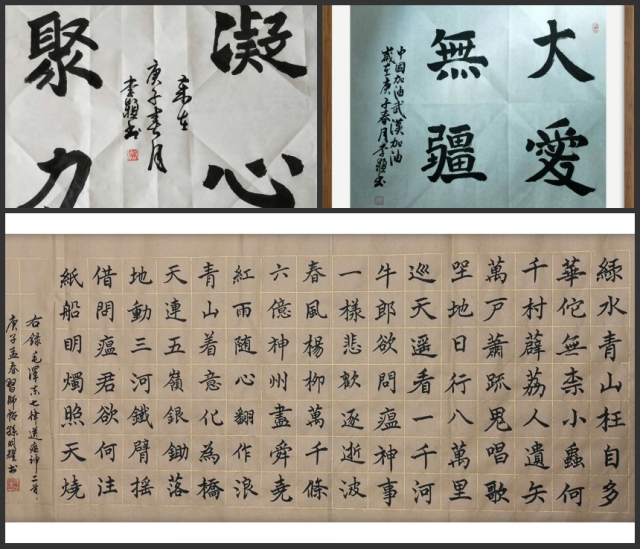 凝心
聚力
庚子春月
大愛
無疆
中国加油武漢加油
歲在庚子春月李
綠水青山枉自多
華佗無柰小蟲何
千村薜荔人遺矢
萬戸蕭疏鬼唱歌
坐地日行八萬里
巡天遥看一千河
牛郎欲問瘟神事
一樣悲歡逐逝波
春風楊柳萬千條
六億神州盡舜堯
紅雨随心翻作浪
青山着意化為橋
天連五嶺銀鋤落
地動三河鐵臂摇
借問瘟君欲何注
紙船明燭照天燒
右録毛澤东七律送瘟神二首
庚子孟春習